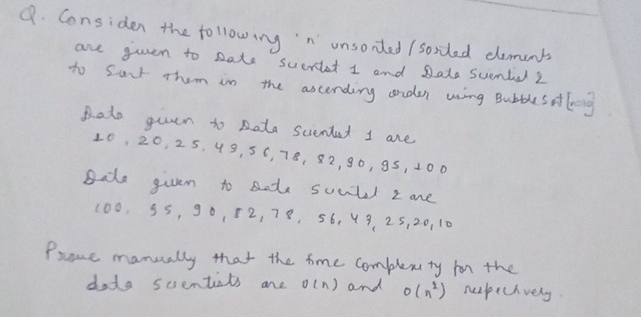 Q. Consider the following 'n' unsorted/sorted elements
are given to Data Scientist 1 and Data Scientist 2
to sort them in the ascending order using Bubble Sort
Data given to Data Scientist 1 are
10, 20, 25, 49, 56, 78, 82, 90, 95, 100
Data given to Data Scientist 2 are
100, 95, 90, 82, 78, 56, 49, 25, 20, 10
Prove manually that the time complexity for the
data scientists are O(n) and O(n²) respectively.